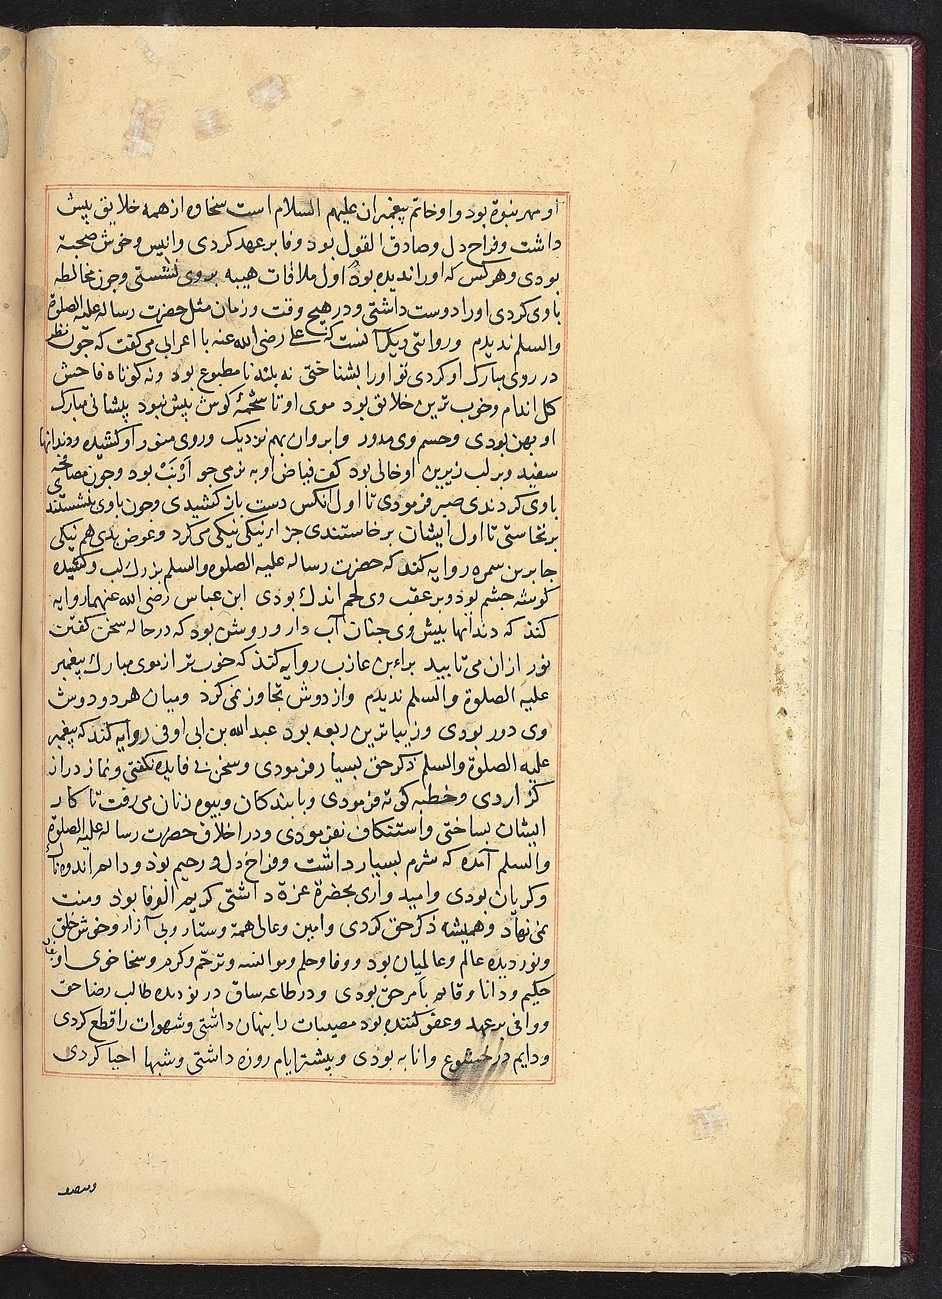 او مهر نبوة بود و او خاتم پیغمبران علیهم السلام است سخاوه از همه خلایق بیش
داشت و فراح دل و صادق القول بود و وفا بر عهد کردی و انیس و خوش صحبة
بودی و هر کس که او را ندیده بود اول ملاقات هیبه بروی نشستی و جون مخالطه
با وی کردی او را دوست داشتی و در هیچ وقت و زمان مثل حضرت رساله علیه الصلوة
والسلم ندیدم و روایتی دیگر آنست که علی رضی الله عنه با اعرابی می کفت که جون نظر
در روی مبارک او کردی تو او را بشناختی نه بلند نا مطبوع بود و نه کوتاه فاحش
کل اندام و خوب ترین خلایق بود موی او تا شحمهٔ کوش بیش نبود پیشانی مبارک
او پهن بودی و جسم وی مدور و ابروان بهم نزدیک و روی منور او کشیده و دندانها
سفید و بر لب زیرین او خالی بود کف فیاض او به نرمی جو ارنب بود و جون مصافحه
با وی کردندی صبر فرمودی تا اول آنکس دست باز کشیدی و جون با وی نشستند
بر نخاستی تا اول ایشان برخاستندی جزاء نیکی نیکی می کرد و عوض بدی هم نیکی
جابر بن سمره روایه کند که حضرت رساله علیه الصلوه والسلم بزرک لب و کشیده
کوشه جشم بود و بر عقب وی لحم اندک بودی ابن عباس رضی الله عنهما روایه
کند که دندانها پیش وی جنان آب دار و روشن بود که در حاله سخن کفتن
نور ازان می تابید براء بن عازب روایه کند که خوب تر از موی مبارک پیغمبر
علیه الصلوة والسلم ندیدم و از دوش تجاوز نمی کرد و میان هر دو دوش
وی دور بودی و زیباترین ربعه بود عبد الله بن ابی اوفی روایه کند که پیغمبر
علیه الصلوة والسلم ذکر حق بسیار فرمودی و سخن بی فایده نکفتی و نماز دراز
کزاردی و خطبه کوته فرمودی و با بندکان و بیوه زنان می رفت تا کار
ایشان بساختی و استنکاف نفرمودی و در اخلاق حضرت رساله علیه الصلوة
والسلم آمده که شرم بسیار داشت و فراخ دل و رحیم بود و دایم اندوه ناک
و کریان بودی و امیدواری بحضرة عزة داشتی کریم الوفا بود و منت
نمی نهاد و همیشه ذکر حق کردی و امین و عالی همة و ستار و بی آزار و خوش خلق
و نور دیده عالم و عالمیان بود و وفا و حلم و موانسه و ترحم و کرم و سخا خوی او
حکیم و دانا و قایم بامر حق بودی و در طاعه ساق در نوردیده طالب رضا حق
و وافی بر عهد و عفو کننده بود مصیبات را پنهان داشتی و شهوات را قطع کردی
و دایم در خشوع و انابه بودی و بیشتر ایام روزه داشتی و شبها احیا کردی